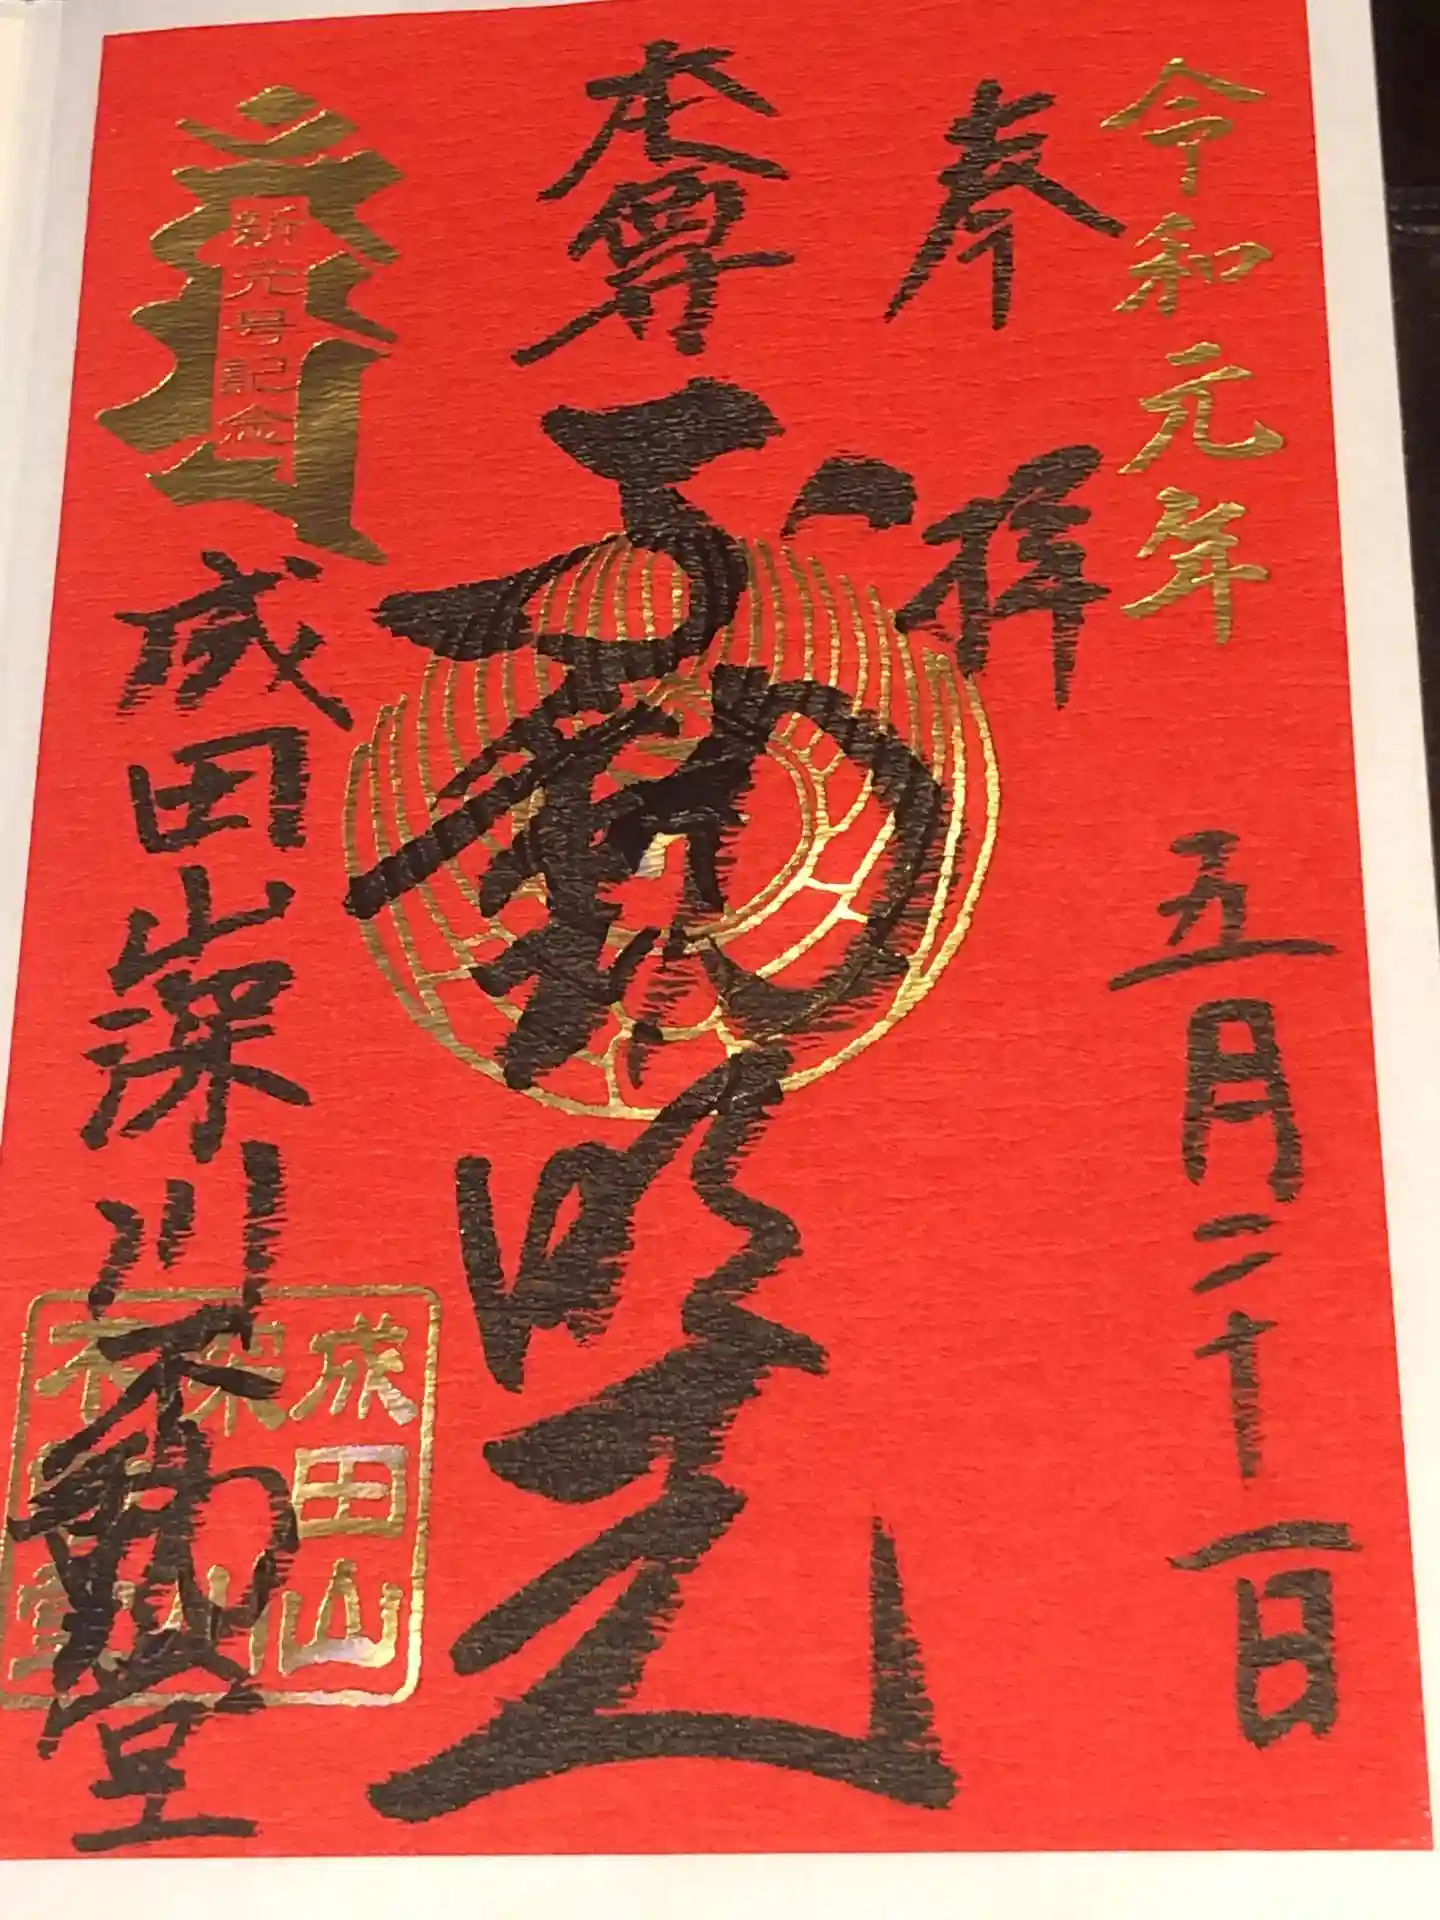 令和元年 五月二十一日
奉拝
本尊 不動明王
新元号記念
成田山深川不動堂
成田山
深川
不動堂